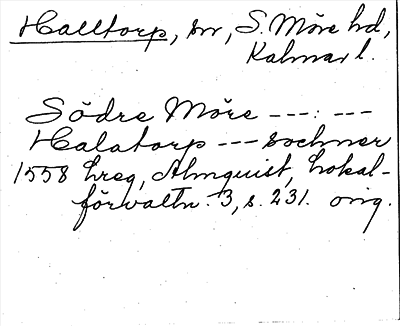 Halltorp, sn, S. Möre hd,
Kalmar l.
Södre Möre ---:---
Halatorp --- sochner
1558 hreg, Almquist, Lokal-
förvaltn. 3, s. 231. orig.